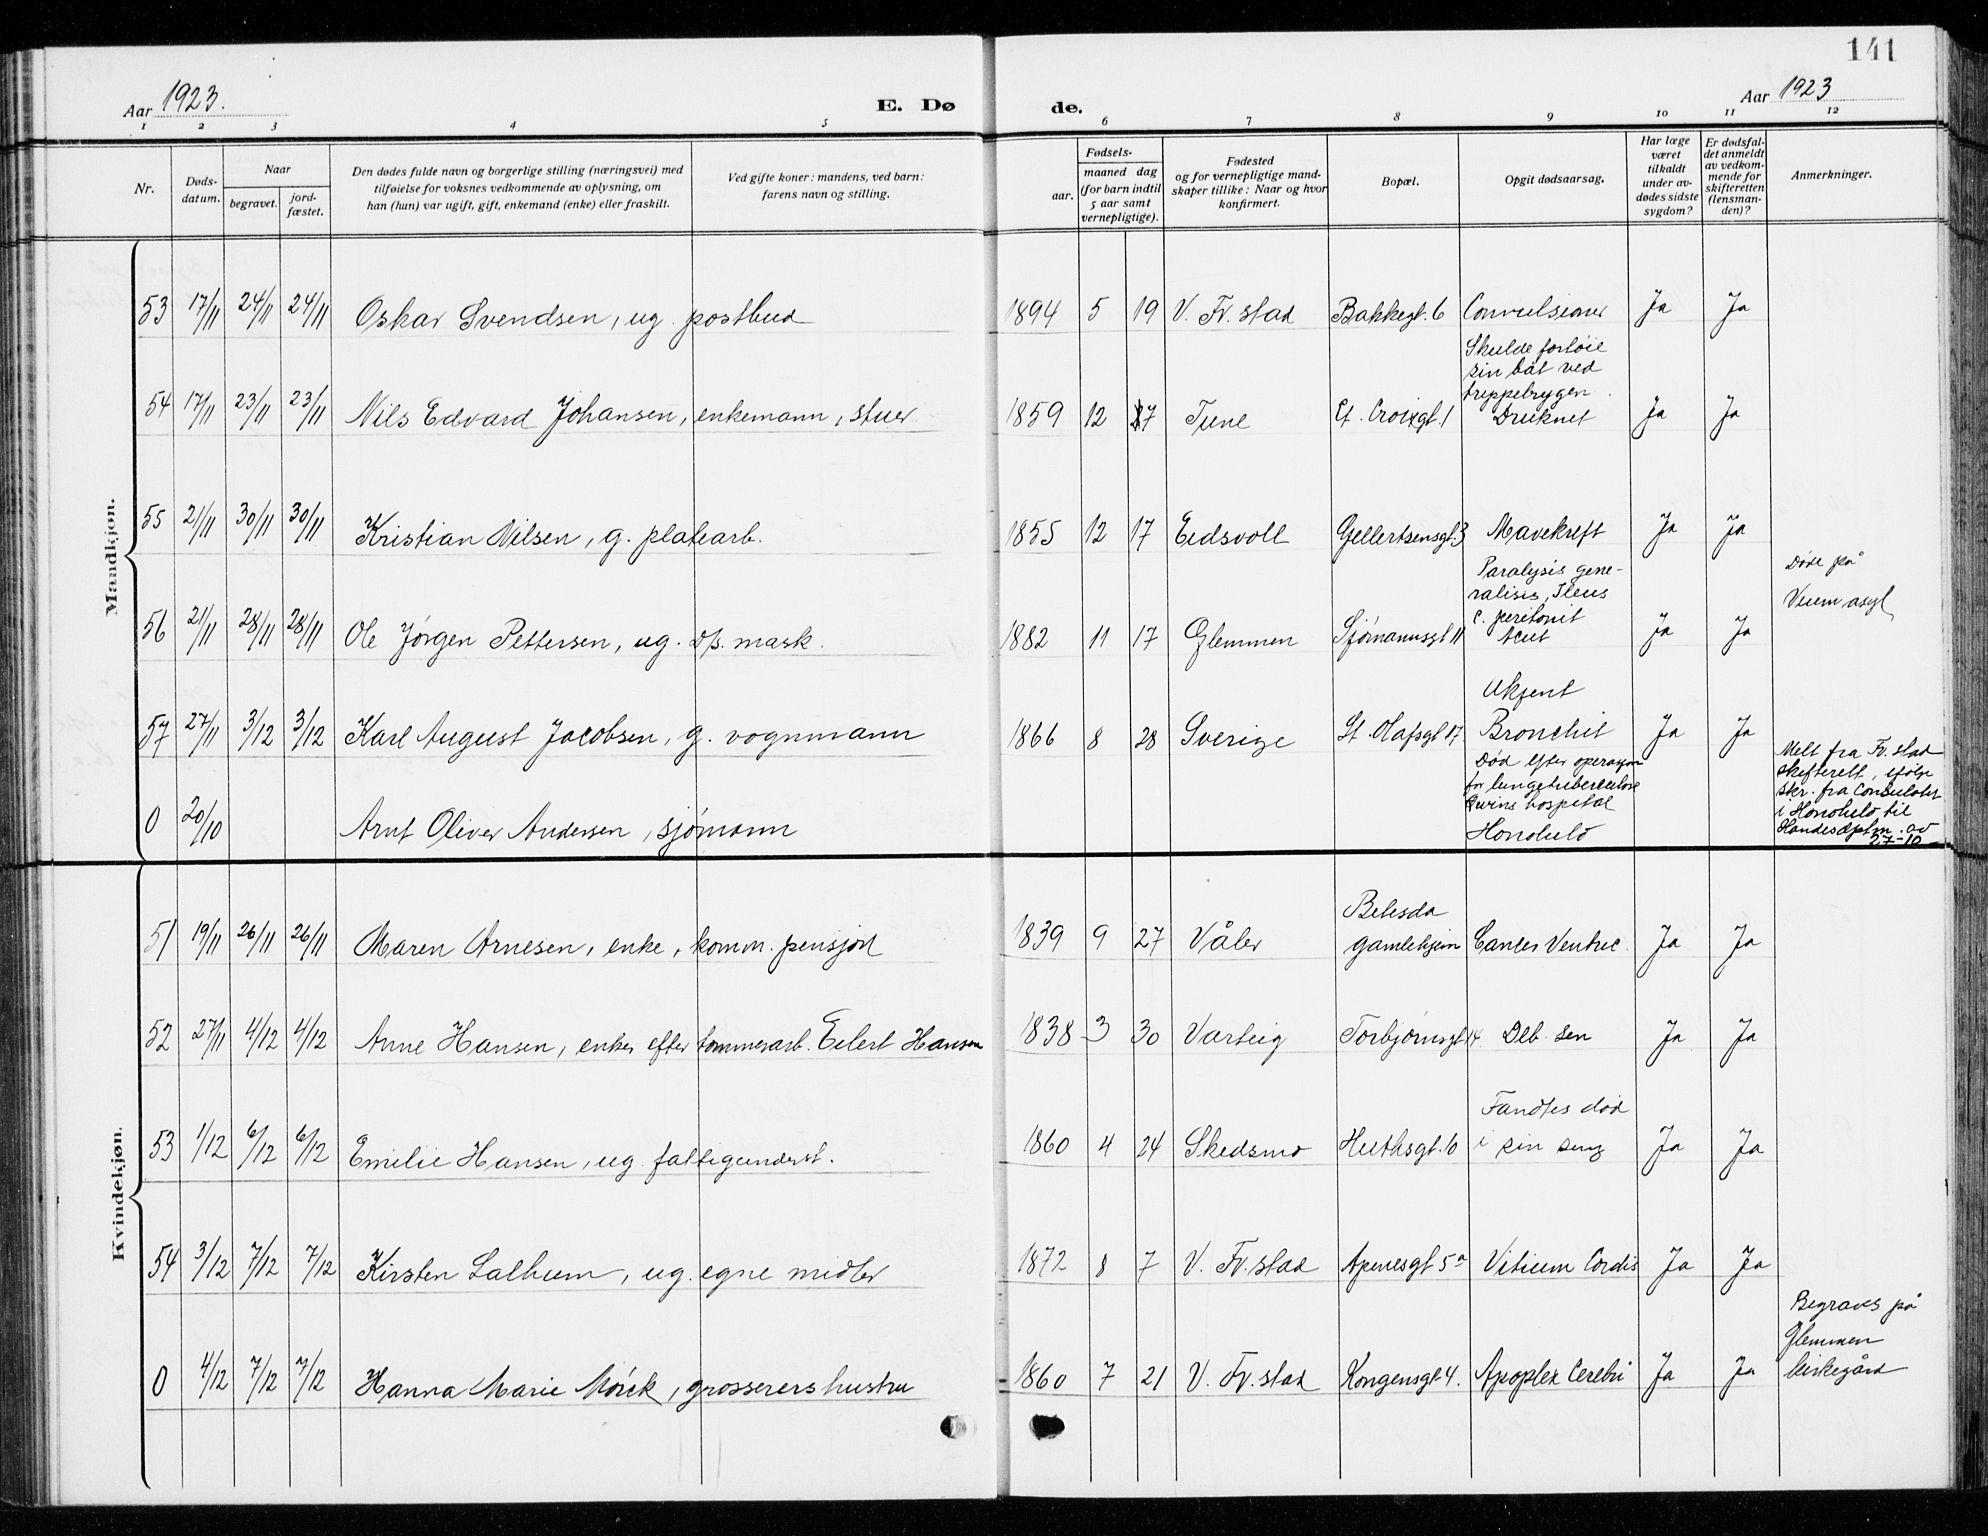 141
Aar 1923.
E. Dø de.
Aar 1923
1 2 3 4 5 6 7 8 9 10 11 12
Nr.
Døds-
datum.
Naar
begravet.
jord-
fæstet.
Den dødes fulde navn og borgerlige stilling (næringsvei) med
tilføielse for voksnes vedkommende av oplysning, om
han (hun) var ugift, gift, enkemand (enke) eller fraskilt.
Ved gifte koner: mandens, ved barn:
farens navn og stilling.
Fødsels-
aar.
maaned dag
(for barn indtil
5 aar samt
vernepligtige).
Fødested
og for vernepligtige mand-
skaper tillike: Naar og hvor
konfirmert.
Bopæl.
Opgit dødsaarsag.
Har læge
været
tilkaldt
under av-
dødes sidste
sygdom?
Er dødsfal-
det anmeldt
av vedkom-
mende for
skifteretten
(lensman-
den)?
Anmerkninger.
Mandkjøn.
53 17/11 24/11 24/11 Oskar Svendsen, ug. postbud 1894 5 19 V. Fr. stad Bakkegt. 6 Convulsioner Ja Ja
Skulde fortøie
sin båt ved
treppebrygen.
54 17/11 23/11 23/11 Nils Edvard Johansen, enkemann, stuer 1859 12 27 Tune St. Croixgt. 1 Druknet Ja Ja
55 21/11 30/11 30/11 Kristian Nilsen, g. platearb. 1855 12 17 Eidsvoll Gellertsensgt. 3 Mavekreft Ja Ja
Paralysis gene-
ralisis, Ileus
c. peritonit
Døde på
Veum asyl
56 21/11 28/11 28/11 Ole Jørgen Pettersen, ug. D/s. mask. 1882 11 17 Glemmen Sjømannsgt 11 Acut Ja Ja
Ukjent
57 27/11 3/12 3/12 Karl August Jacobsen, g. vognmann 1866 8 28 Sverige St. Olafsgt 17 Bronchit Ja Ja
Død efter operasjon
for lungetuberculose
hospital
Honolulo
0 20/10 Arnt Oliver Andersen, sjømann
Melt fra Fr. stad
skifterett, ifølge
skr. fra Consulatet
i Honolulo til
av
27-10
Kvindekjøn.
51 19/11 26/11 26/11 Maren Arnesen, enke, komm. pensjon 1839 9 27 Våler Betesda
gamlehjem Cancer Ventric. Ja Ja
52 27/11 4/12 4/12 Anne Hansen, enke efter tommerarb. Eilert Hansen 1838 3 30 Varteig Torbjørnsgt 14 Deb. sen Ja Ja
53 1/12 6/12 6/12 Emilie Hansen, ug. fattigunderst. 1860 4 24 Skedsmo Huthsgt. 10 Fandtes død
i sin seng Ja Ja
54 3/12 7/12 7/12 Kirsten Lalhum, ug. egne midler 1872 8 7 V. Fr. stad Apenesgt 5a Vitium Cordis Ja Ja
0 4/12 7/12 7/12 Hanna Marie Mørck, grosserers hustru 1860 7 21 V. Fr. stad Kongensgt 4. Apoplex Cerebri Ja Ja
Begraves på
Glemmen
kirkegård